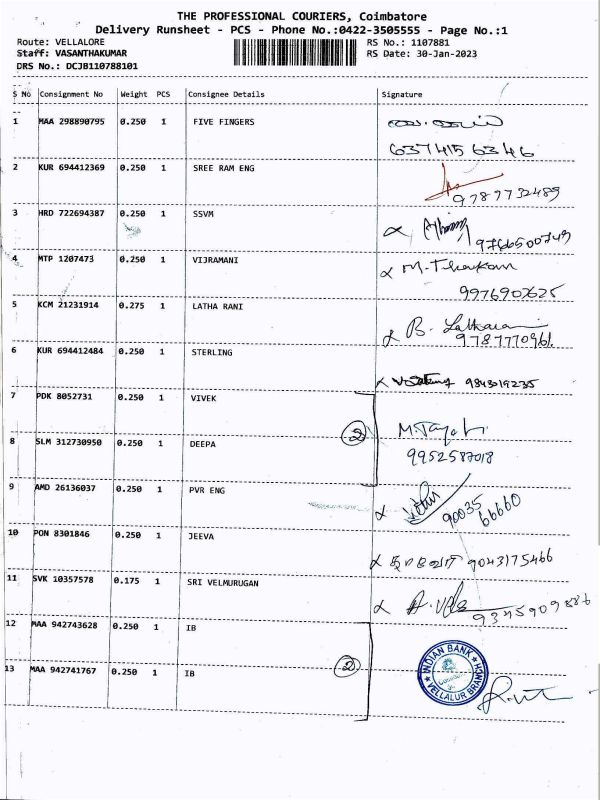 THE PROFESSIONAL COURIERS, Coimbatore
Delivery Runsheet - PCS - Phone No.:0422-3505555 - Page No.:1
Route: VELLALORE RS No.: 1107881
Staff: VASANTHAKUMAR RS Date: 30-Jan-2023
DRS No.: DCJB110788101
S No Consignment No Weight PCS Consignee Details Signature
1 MAA 298890795 0.250 1 FIVE FINGERS
6374156346
2 KUR 694412369 0.250 1 SREE RAM ENG
9787732489
3 HRD 722694387 0.250 1 SSVM
4 MTP 1207473 0.250 1 VIJRAMANI
9976907625
5 KCM 21231914 0.275 1 LATHA RANI B.
9787770961
6 KUR 694412484 0.250 1 STERLING
9843019235
7 PDK 8052731 0.250 1 VIVEK
2
8 SLM 312730950 0.250 1 DEEPA
9952587018
9 AMD 26136037 0.250 1 PVR ENG
90035
66660
10 PON 8301846 0.250 1 JEEVA
9043175466
11 SVK 10357578 0.175 1 SRI VELMURUGAN
9345909886
12 MAA 942743628 0.250 1 IB
13 MAA 942741767 0.250 1 IB 2
INDIAN BANK
VELLALUR BRANCH